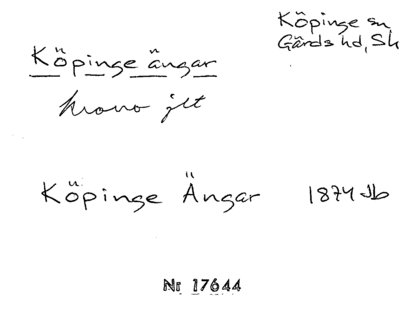 Köpinge sn
Gärds hd, Sk
Köpinge ängar
krono jlt
Köpinge Ängar 1874 Jb
Nr 17644